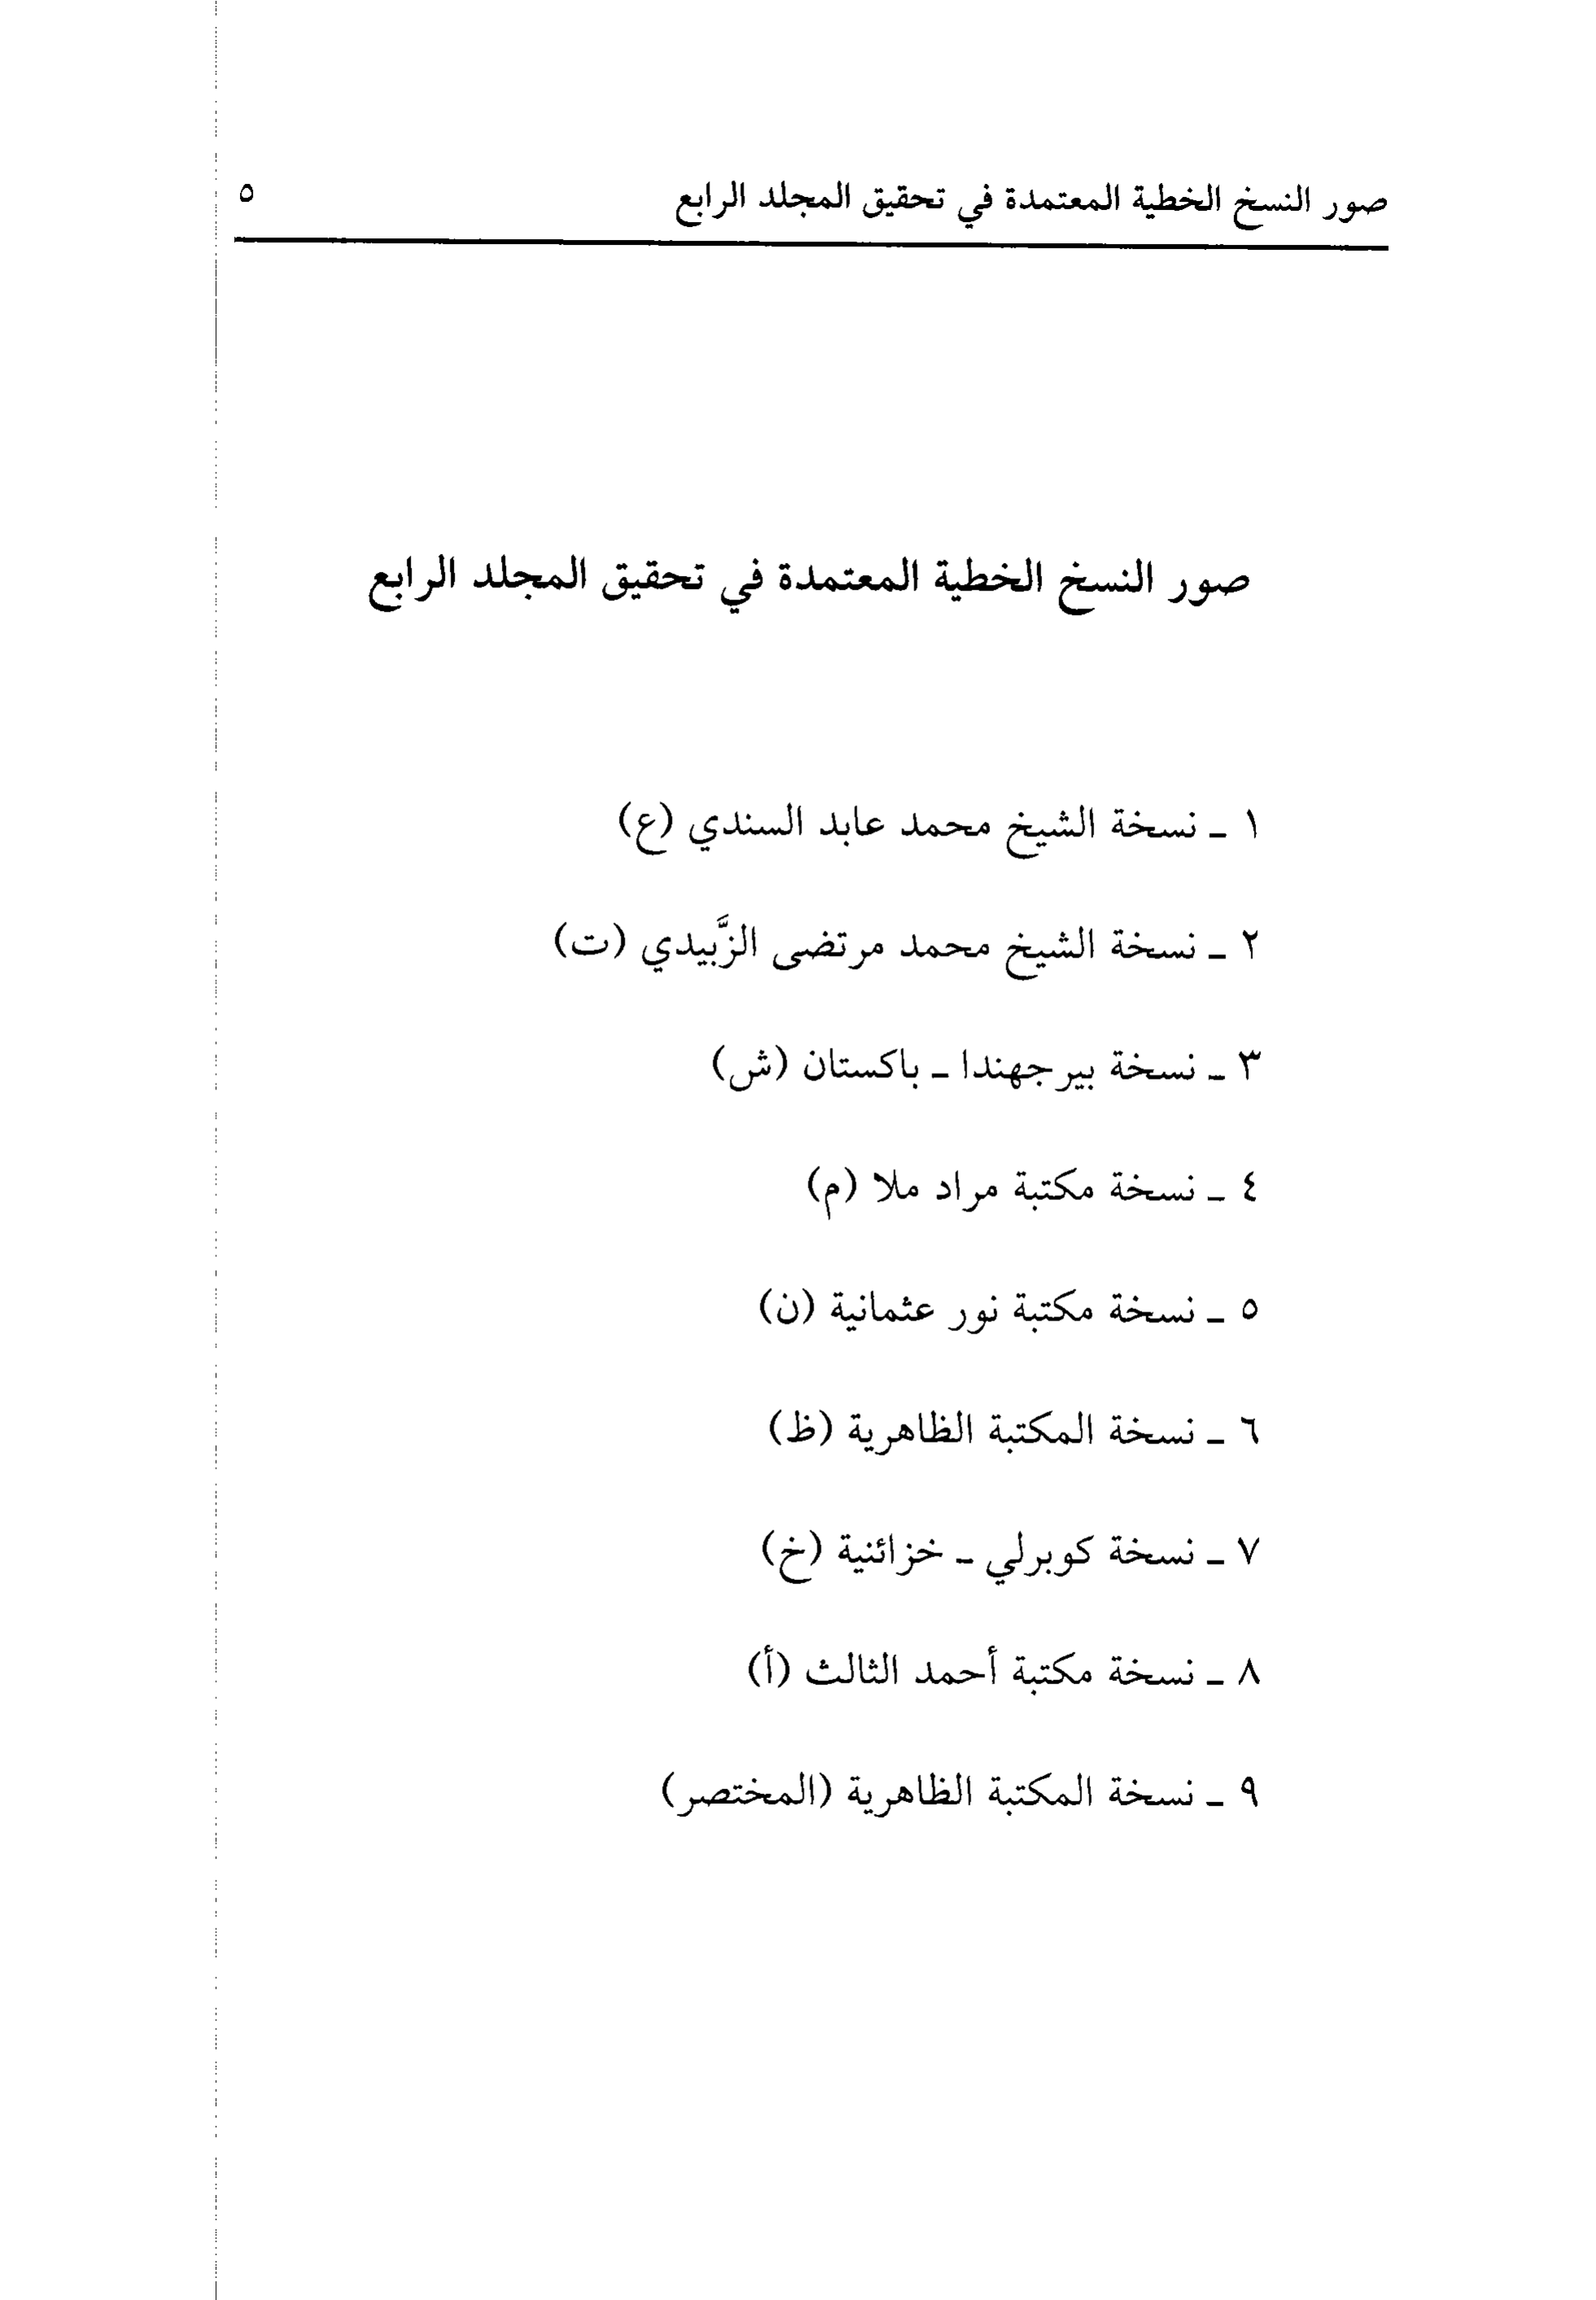 صور النسخ الخطية المعتمدة في تحقيق المجلد الرابع ٥
صور النسخ الخطية المعتمدة في تحقيق المجلد الرابع
١ ـ نسخة الشيخ محمد عابد السندي (ع)
٢ ـ نسخة الشيخ محمد مرتضى الزَّبيدي (ت)
٣ ـ نسخة بيرجهندا ـ باكستان (ش)
٤ ـ نسخة مكتبة مراد ملا (م)
٥ ـ نسخة مكتبة نور عثمانية (ن)
٦ ـ نسخة المكتبة الظاهرية (ظ)
٧ ـ نسخة كوبرلي ـ خزائنية (خ)
٨ ـ نسخة مكتبة أحمد الثالث (أ)
٩ ـ نسخة المكتبة الظاهرية (المختصر)